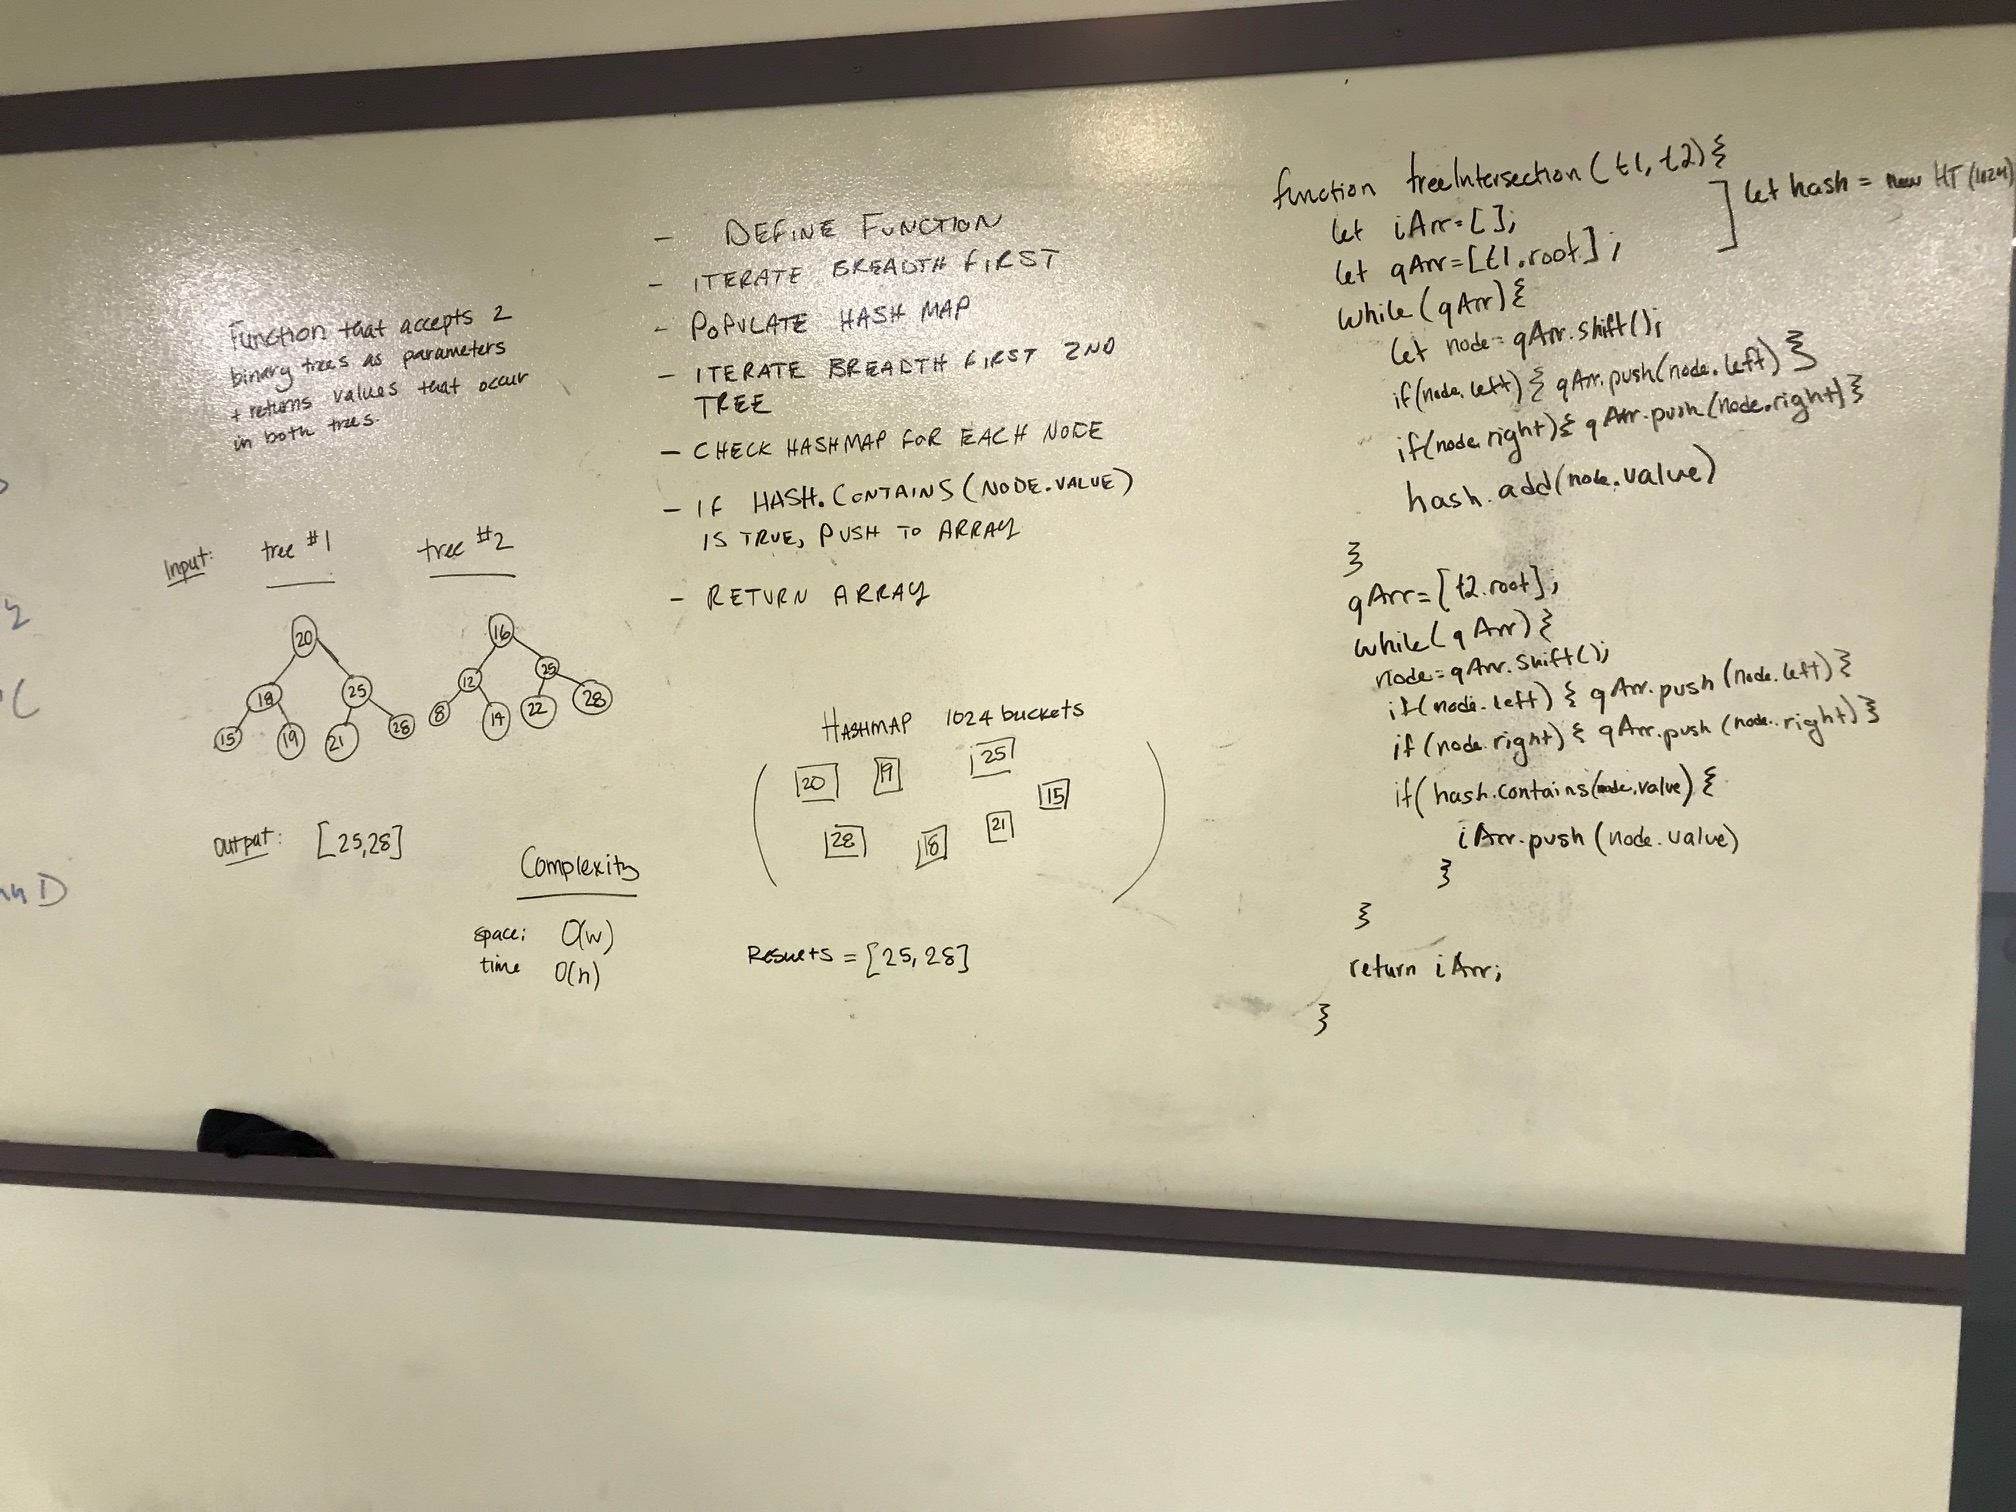 Function that accepts 2
binary trees as parameters
+ returns values that occur
in both trees.
Input: tree #1 tree #2
20
18 25
15 19 21 28
16
12 25
8 14 22 28
Output: [25,28]
Complexity
space: O(w)
time O(n)
- DEFINE FUNCTION
- ITERATE BREADTH FIRST
- POPULATE HASH MAP
- ITERATE BREADTH FIRST 2ND
TREE
- CHECK HASHMAP FOR EACH NODE
- IF HASH.CONTAINS(NODE.VALUE)
IS TRUE, PUSH TO ARRAY
- RETURN ARRAY
HASHMAP 1024 buckets
20 19 25
15
28 18 21
Results = [25,28]
function treeIntersection(t1, t2){
let iArr=[];
let qArr=[t1.root];
] let hash = new HT(1024)
while(qArr){
let node=qArr.shift();
if(node.left){qArr.push(node.left)}
if(node.right){qArr.push(node.right)}
hash.add(node.value)
}
qArr=[t2.root];
while(qArr){
node=qArr.shift();
if(node.left){qArr.push(node.left)}
if(node.right){qArr.push(node.right)}
if(hash.contains(node.value){
iArr.push(node.value)
}
}
return iArr;
}
2
C
D